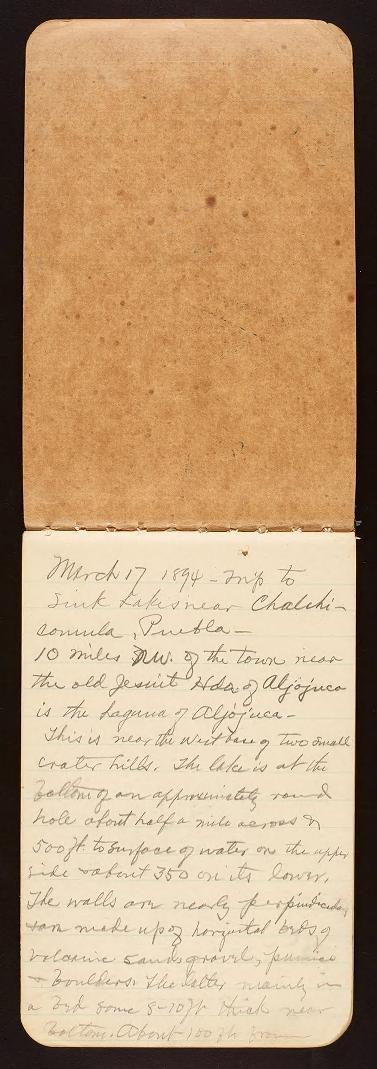 March 17 1894 - Trip to
Sink Lakes near Chalchi-
comula, Puebla -
10 miles N.W. of the town near
the old Jesuit Hda of Aljojuca
is the Laguna of Aljojuca -
This is near the west base of two small
crater hills. The lake is at the
bottom of an approximately round
hole about half a mile across &
500 ft to surface of water on the upper
side & about 350 on its lower.
The walls are nearly perpendicular
& are made up of horizontal beds of
volcanic sand gravel, pumice
& boulders. The latter mainly in
a bed some 8-10 ft thick near
bottom. About 100 ft from